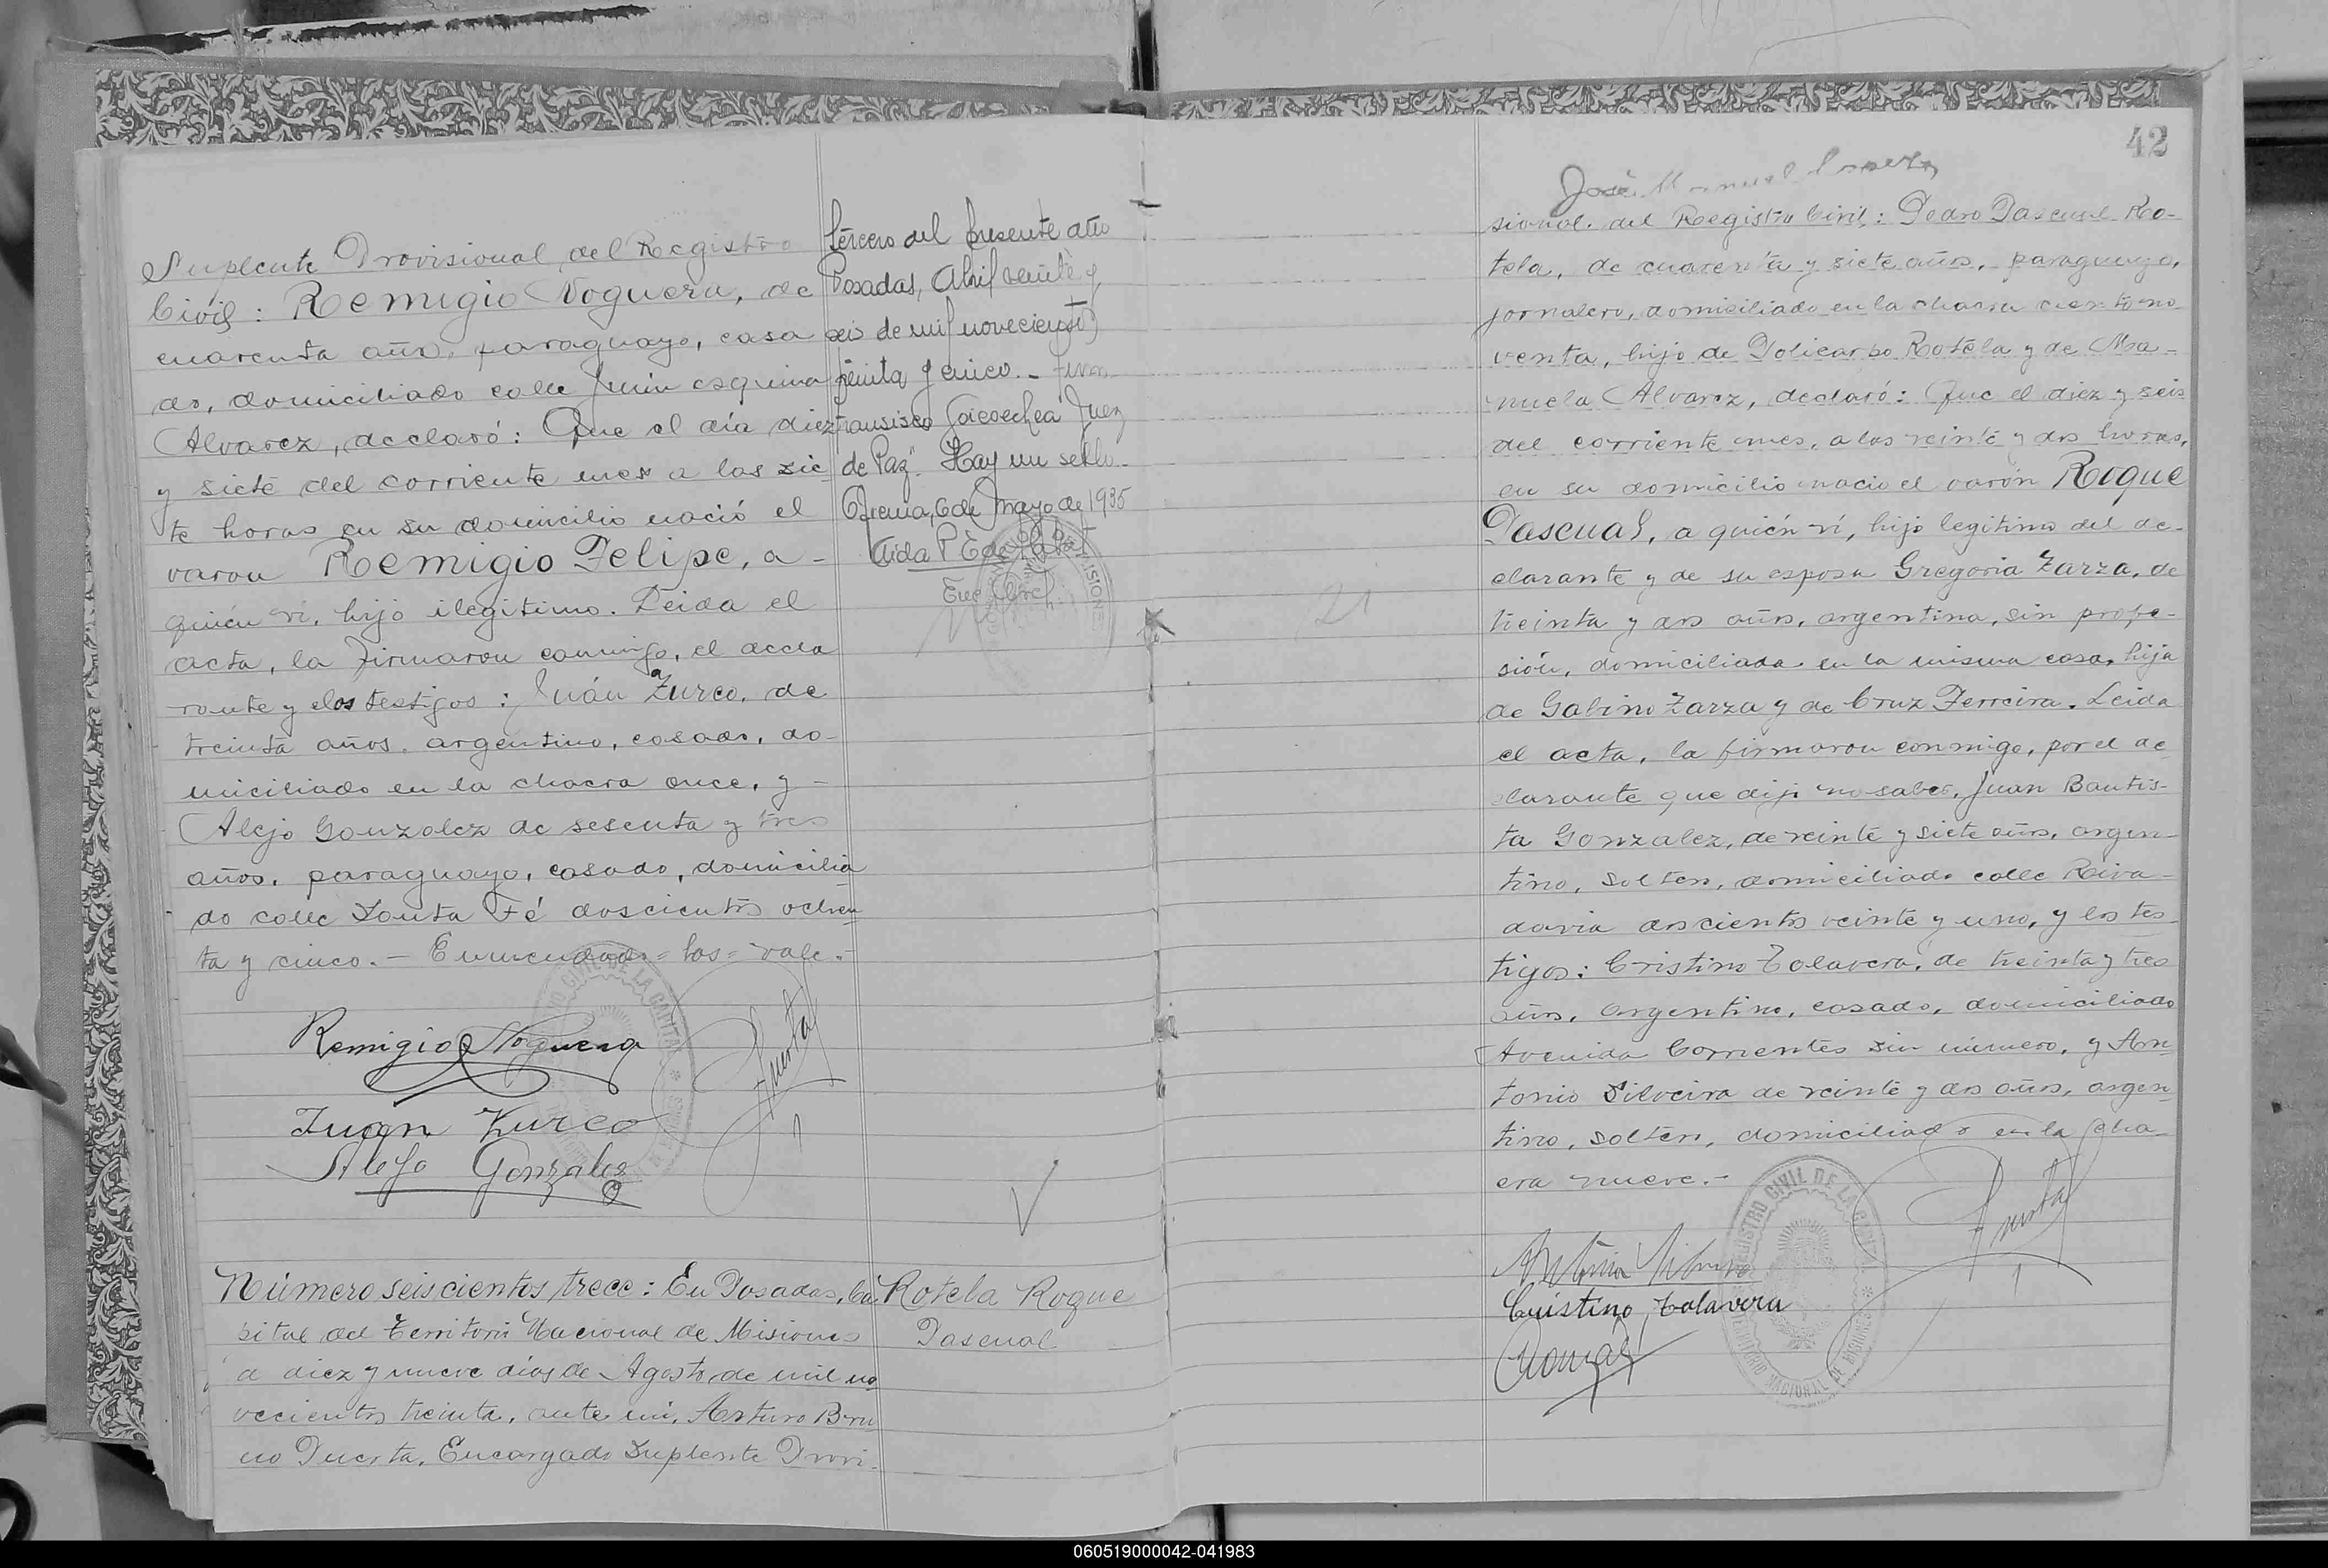 Suplente Provisional del Registro
Civil: Remigio Noguera, de
cuarenta años, paraguayo, casa
do, domiciliado calle Junin esquina
Alvarez, declaró: Que el día diez
y siete del corriente mes a las sie
te horas en su domicilio nació el
varon Remigio Felipe, a-
quién ví, hijo ilegitimo. Leida el
acta, la firmaron conmigo, el decla
rante y los testigos: Juán Zurco, de
treinta años, argentino, casado, do-
miciliado en la chacra once, y-
Alejo Gonzalez de sesenta y tres
años, paraguayo, casado, domicilia
do calle Santa Fé doscientos ochen
ta y cinco.- Enmendado=los=vale.-
Remigio Noguera
Juan Zurco
Alejo Gonzalez
Puerta
tercero del presente año
Posadas, Abril veinte y
seis de mil novecientos
treinta y cinco.- firm
Fransisco Goicoechea Juez
de Paz". Hay un sello.-
6 de Mayo de 1935
Aida P. E. de
Número seiscientos trece: En Posadas, Ca
pital del Territorio Nacional de Misiones
a diez y nueve dias de Agosto de mil no
vecientos treinta, ante mi, Arturo Bru
no Puerta, Encargado Suplente Provi-
Rotela Roque
Pascual
42
José Manuel
sional del Registro Civil: Pedro Pascual Ro-
tela, de cuarenta y siete años, paraguayo,
jornalero, domiciliado en la chacra ciento no
venta, hijo de Policarpo Rotela y de Ma-
nuela Alvarez, declaró: Que el diez y seis
del corriente mes, a las veinte y dos horas,
en su domicilio nacio el varón Roque
Pascual, a quién ví, hijo legitimo del de-
clarante y de su esposa Gregoria Zarza, de
treinta y dos años, argentina, sin profe-
sión, domiciliada en la misma casa, hija
de Gabino Zarza y de Cruz Ferreira. Leida
el acta, la firmaron conmigo, por el de
clarante que dijo no saber, Juan Bautis-
ta Gonzalez, de veinte y siete años, argen-
tino, soltero, domiciliado calle Riva-
davia doscientos veinte y uno, y los tes-
tigos: Cristino Talavera, de treinta y tres
años, argentino, casado, domiciliado
Avenida Corrientes sin número, y An
tonio Silveira de veinte y dos años, argen
tino, soltero, domiciliado en la cha
cra nueve.-
21
Antonio Silveira
Cristino Talavera
Puerta
REGISTRO CIVIL DE LA CAPITAL
TERRITORIO NACIONAL DE MISIONES
060519000042-041983